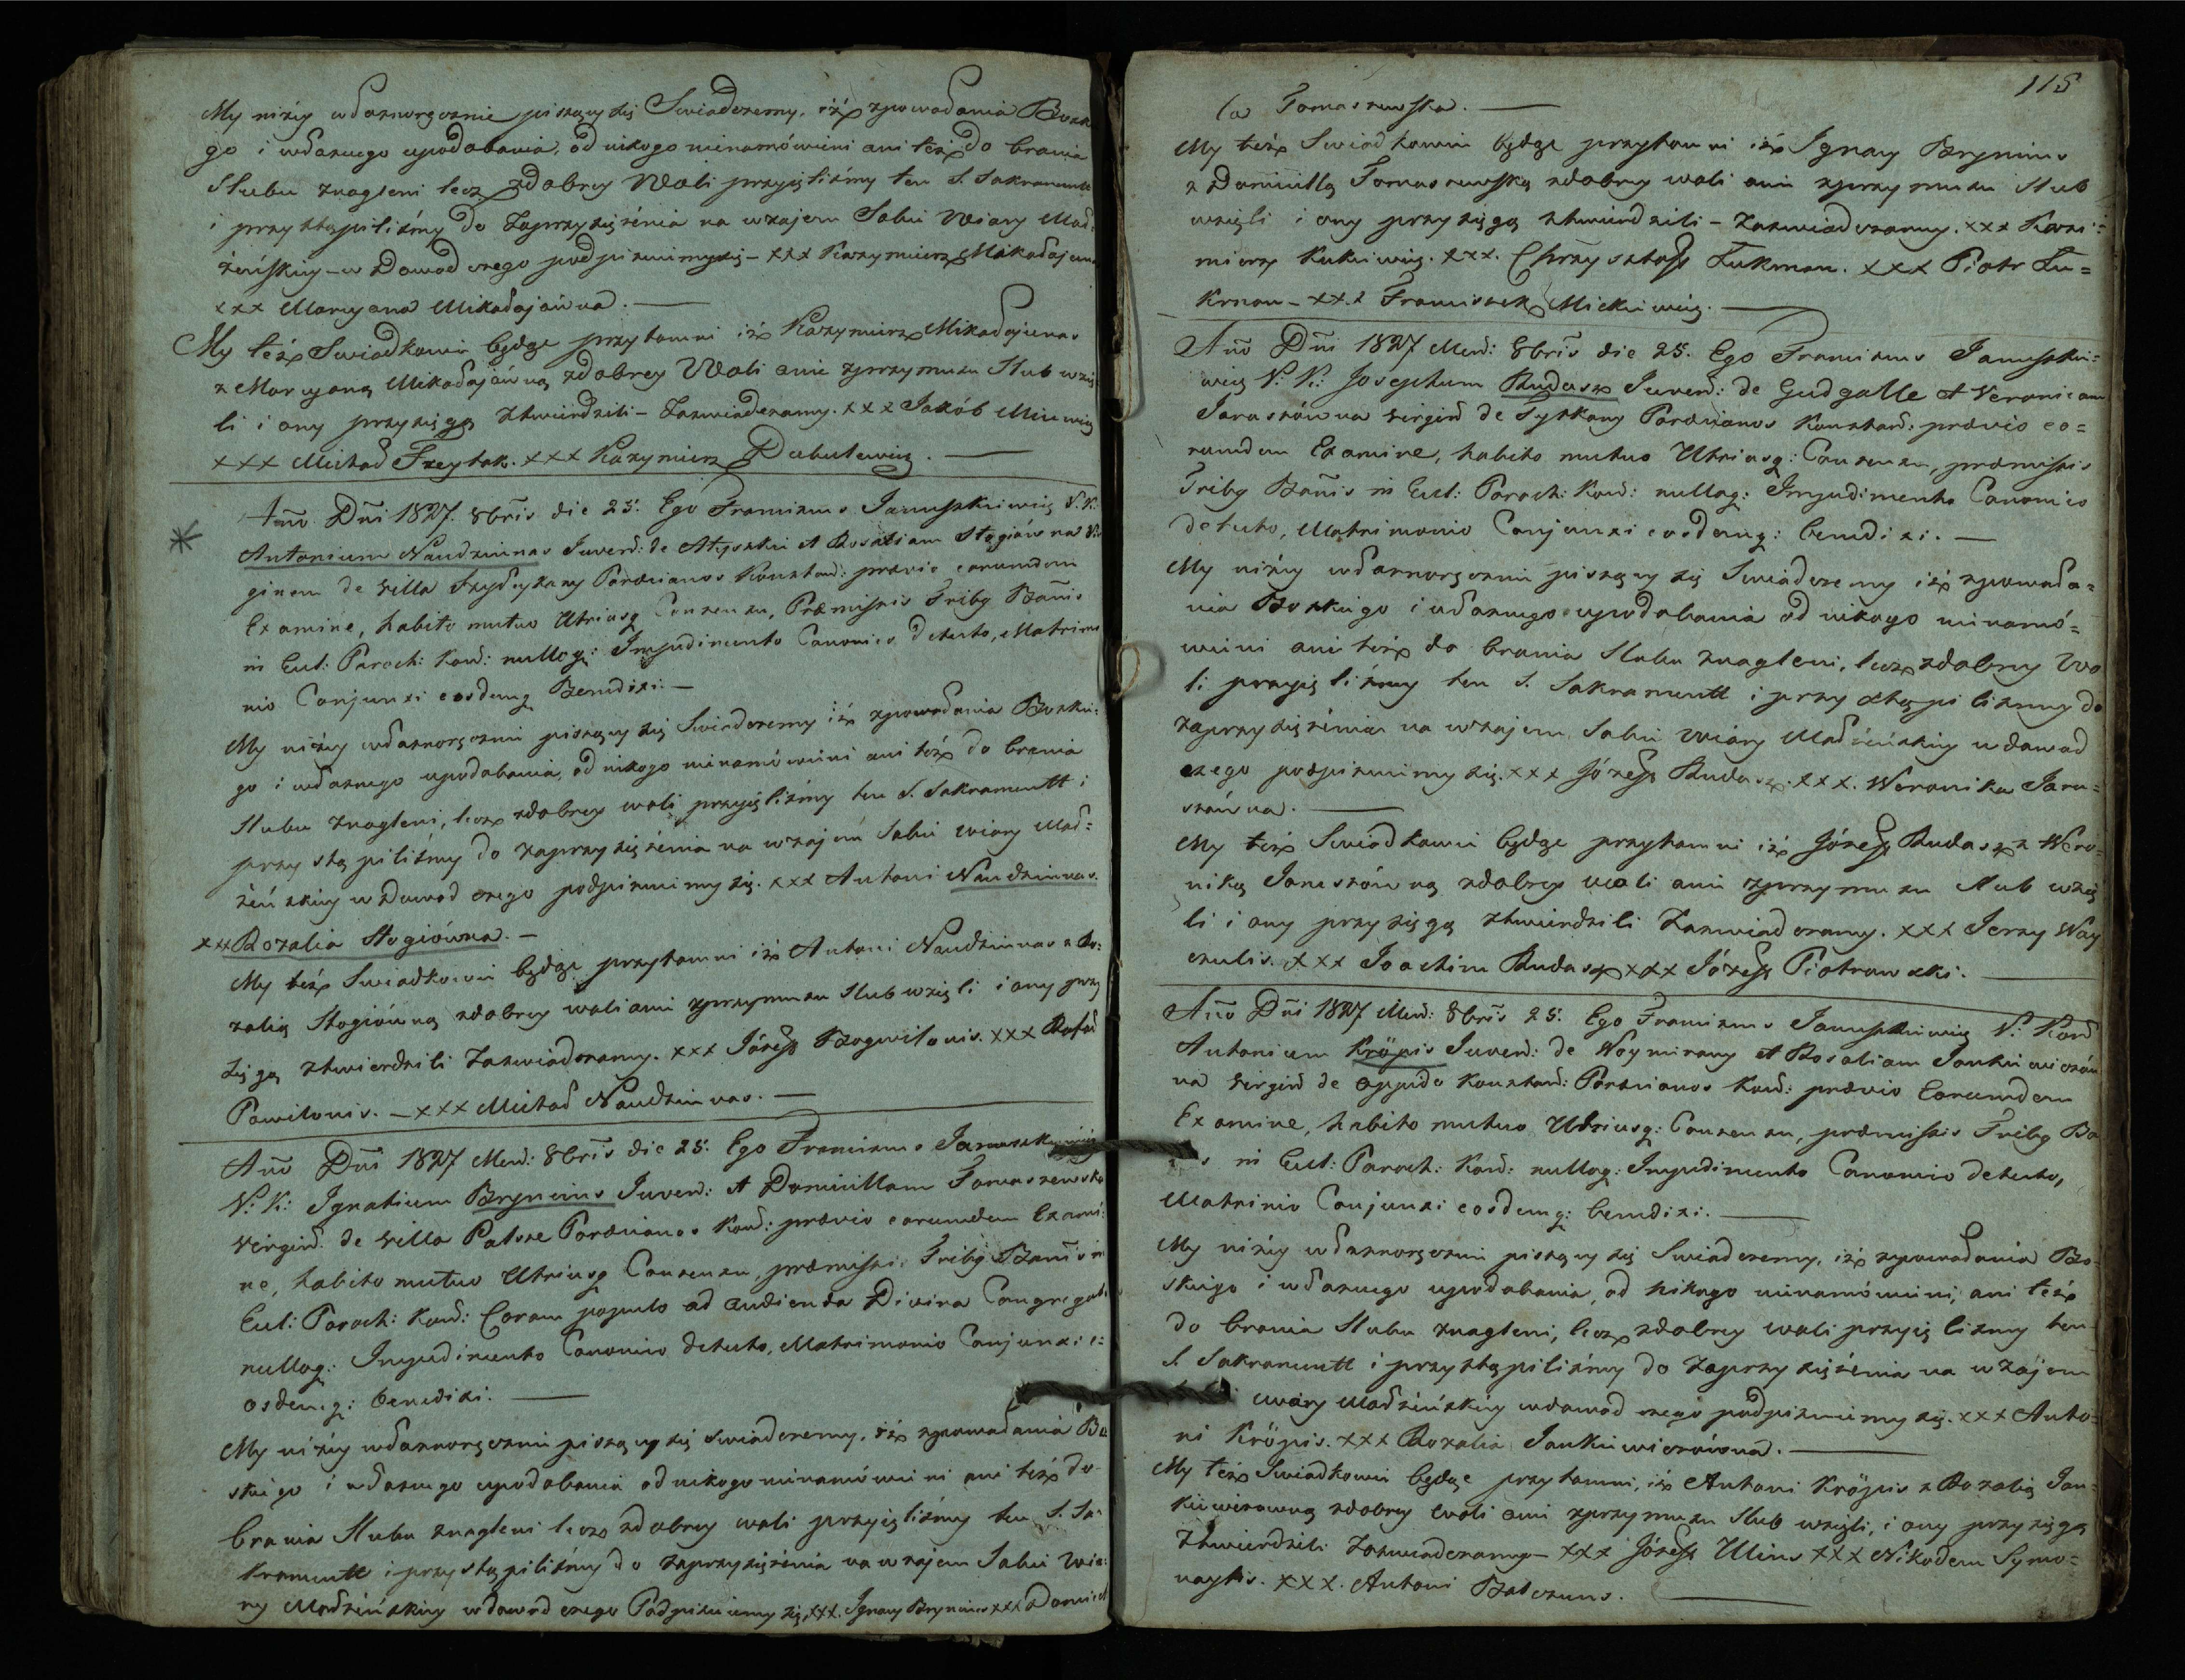 My niżey własnoręcznie piszący się Swiadczemy, iż z powołania Bozke
go i własnego upodobania, od nikogo nienamówieni ani też do brania
Slubu znagleni lecz zdobrey Woli przyjęlismy ten S. Sakramentt
i przystąpilismy do Zaprzysiężenia na wzajem Sobie Wiary Mał:
żeńskiey – w Dowod czego podpisuiemy się – xxx Kazymierz Mikałajunas
xxx Maryana Mikałajówna. —
My też Swiadkowie będąc przytomni iż Kazymierz Mikałajunas
z Maryaną Mikałajówną zdobrey Woli ani zprzymusu Slub wzię
li i ony przysięgą ztwierdzili – Zaswiadczamy. xxx Jakób Micewicz
xxx Michał Freytak. xxx Kazymierz Dabulewicz. —
Año Dñi 1827. 8bris die 25. Ego Franciscus Januszkiewicz V. K:
Antonium Naudziunas Juven: de Atyszki et Rosaliam Stogiówna Vir
ginem de Villa Szydyszany Parocianos Konstan: praevio earumdem
Examine, habito mutuo Utriusq Consensu, Praemissis Tribq Banis
in Eccl: Paroch: Kon: nulloq: Impedimento Canonico Detecto, Matrimo
nio Conjunxi eosdemq Benedixi. —
My niżey własnoręcznie piszący się Swiadczemy iż zpowołania Bozkie:
go i własnego upodobania, od nikogo nienamówieni ani też do brania
Slubu Znagleni, lecz zdobrey woli przyjęlismy ten S. Sakramentt i
przystąpilismy do zaprzysiężenia na wzajem Sobie wiary Mał:
żeńskiey w Dowod czego podpisuiemy się. xxx Antoni Naudziunas.
xxx Rozalia Stogiówna. —
My też Swiadkowie będąc przytomni iż Antoni Naudziunas z Ro:
zalią Stogiówną zdobrey woli ani zprzymusu Slub wzięli i ony przy
sięgą ztwierdzili Zaswiadczamy. xxx Józef Bogwilonis. xxx Rafał
Pawilonis. – xxx Michał Naudziunas. —
Año Dñi 1827 Men: 8bris die 25. Ego Franciscus Januszkiewicz
V: K: Ignatium Bryncius Juven: et Domicillam Tomaszewska
Virgin: de Villa Patsze Parocianos Kon: praevio earumdem Exami:
ne, habito mutuo Utriusq Consensu, praemissis Tribq Banis in
Eccl: Paroch: Kon: Coram populo ad audienda Divina Congregato
nulloq: Impedimento Canonico detecto, Matrimonio Conjunxi e:
osdemq: benedixi. —
My niżey własnoręcznie piszący się swiadczemy, iż zpowołania Bo
skiego i własnego upodobania od nikogo nienamówieni ani też do
brania Slubu znagleni lecz zdobrey woli przyjęlismy ten S. Sa:
kramentt i przystąpilismy do zaprzysiężenia na wzajem Sobie Wia:
ry Małżeńskiey w dowod czego Podpisuiemy się, xxx. Ignacy Bryncius xxx Domicel
115
la Tomaszewska. —
My też Swiadkowie będąc przytomni iż Ignacy Bryncius
z Domicillą Tomaszewską zdobrey woli ani zprzymusu Slub
wzięli i ony przysięgą ztwierdzili – Zaswiadczamy. xxx Kazi:
mierz Kukiewicz. xxx. Chrzysztoff Lukman. xxx Piotr Lu=
kman – xxx Franciszek Mickiewicz. —
Año Dñi 1827 Men: 8bris die 25. Ego Franciscus Januszkie:
wicz V: K: Josephum Rudasz Juven: de Gudgalle et Veronicam
Jaruszówna Virgin de Tyszkany Parocianos Konstan: praevio ea=
rumdem Examine, habito mutuo Utriusq: Consensu, praemissis
Tribq Banis in Eccl: Paroch: Kon: nulloq: Impedimento Canonico
detecto, Matrimonio Conjunxi eosdemq: benedixi. —
My niżey własnoręcznie piszący się Swiadczemy iż zpowoła=
nia Bozkiego i własnego upodobania od nikogo nienamó=
wieni ani też do brania Slubu znagleni, lecz zdobrey Wo
li przyjęlismy ten S. Sakramentt i przystąpilismy do
zaprzysiężenia na wzajem Sobie wiary Małżeńskiey w dowod
czego podpisuiemy się. xxx Józeff Rudasz. xxx. Weronika Jaru=
szówna. —
My też Swiadkowie będąc przytomni iż Józeff Rudasz z Wero=
niką Jaruszówną zdobrey woli ani zprzymusu Slub wzię
li i ony przysięgą ztwierdzili Zaswiadczamy. xxx Jerzy Way
czulis. xxx Joachim Rudasz xxx Józeff Piotrowski. —
Año Dñi 1827 Men: 8bris 25. Ego Franciscus Januszkiewicz V: Kon
Antonium Kröpis Juven: de Woymirany et Rosaliam Jankiewiczów
na Virgin de oppido Konstan: Parocianos Kon: praevio Earumdem
Examine, habito mutuo Utriusq: Consensu, praemissis Tribq Ba
s in Eccl: Paroch: Kon: nulloq: Impedimento Canonico detecto,
Matrinio Conjunxi eosdemq: benedixi. —
My niżey własnoręcznie piszący się Swiadczemy, iż zpowołania Bo
skiego i własnego upodobania, od nikogo nienamówieni, ani też
do brania Slubu znagleni, lecz zdobrey woli przyjęlismy ten
S. Sakramentt i przystąpilismy do Zaprzysiężenia na wzajem
wiary Małżeńskiey w dowod czego podpisuiemy się. xxx Anto=
ni Kröpis. xxx Rozalia Jankiewiczówna. —
My też Swiadkowie będąc przytomni, iż Antoni Kröpis z Rozalią Jan=
kiewiczowną zdobrey woli ani zprzymusu Slub wzięli, i ony przysięgą
Ztwierdzili Zaswiadczamy – xxx Józeff Ulins xxx Nikodem Symo=
naytis. xxx. Antoni Balczuns. —